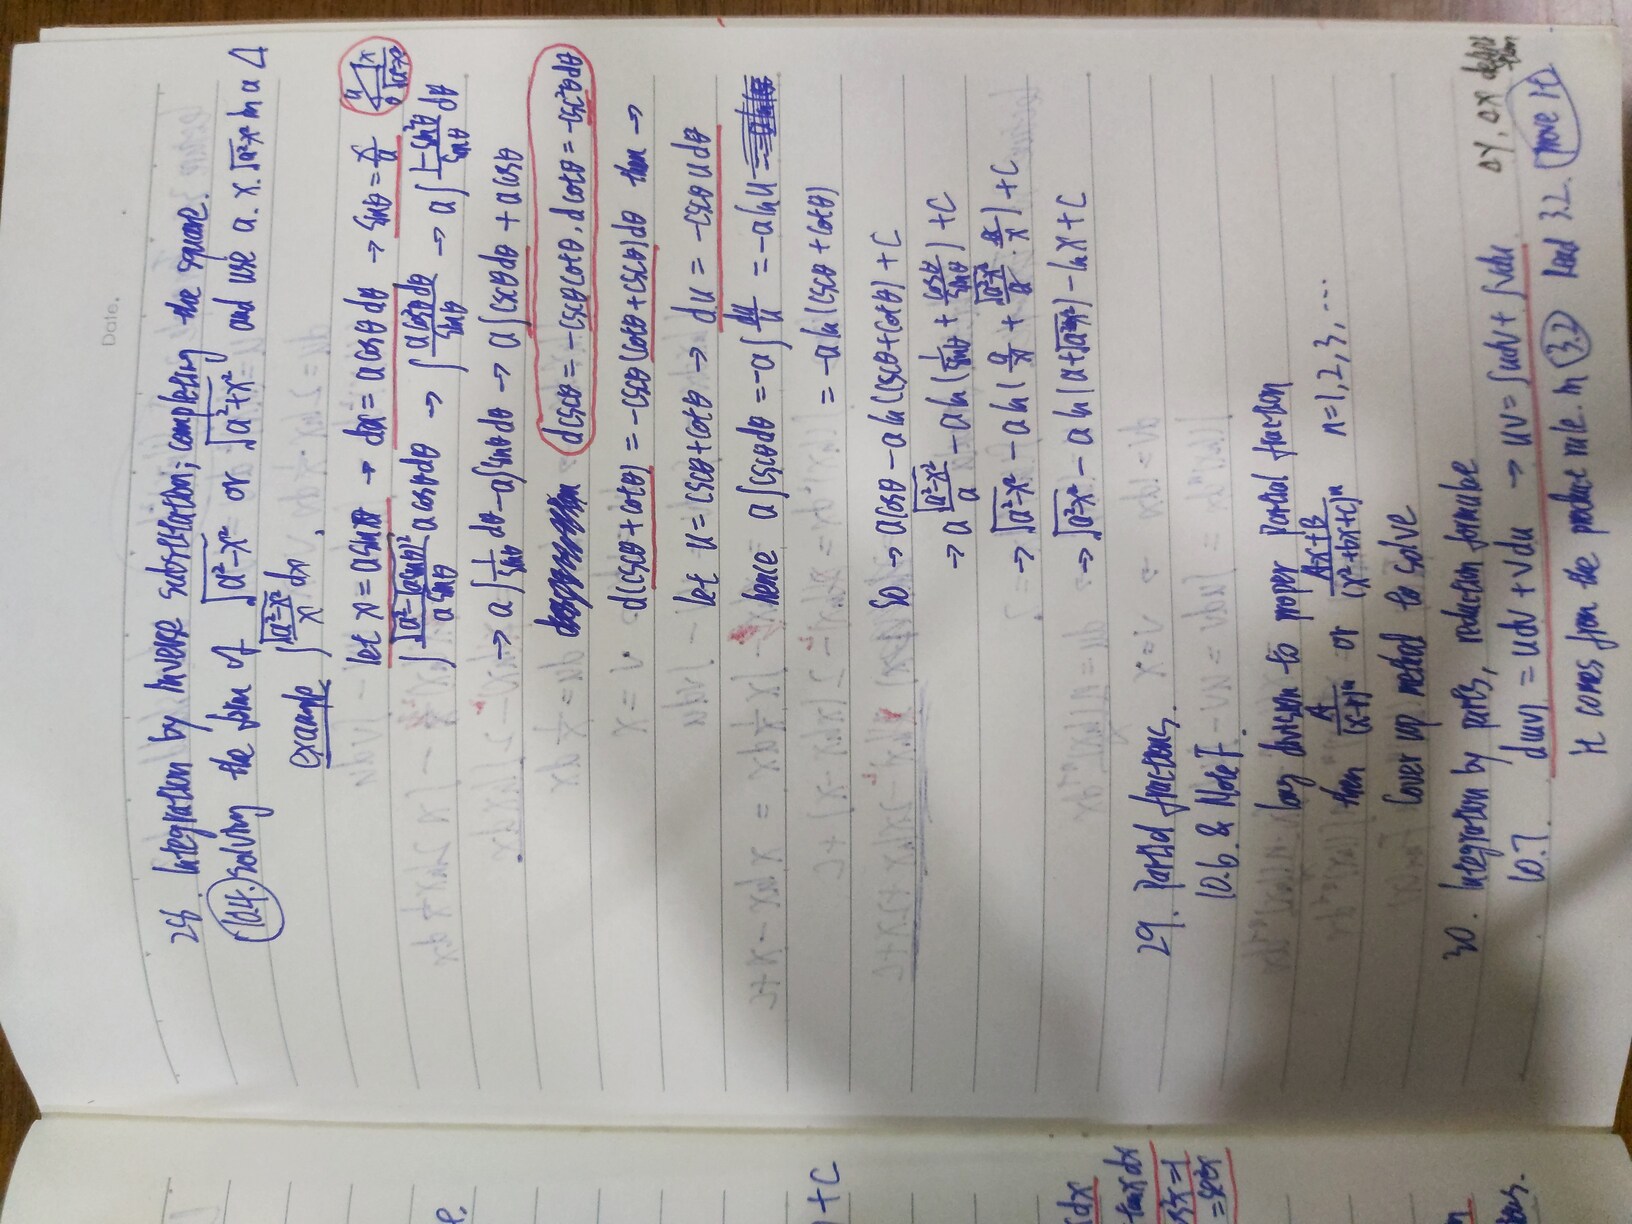 Date.
28. Integration by inverse substitution; completing the square.
10.4. solving the form of √(a²-x²) or √(a²+x²) and use a. x. √(a²-x²) in a △
example ∫ √(a²-x²)/x dx.
let x = a sinθ → dx = a cosθ dθ → sinθ = x/a
a x θ √(a²-x²)
∫ √(a²-(a sinθ)²)/(a sinθ) a cosθ dθ → ∫ a cos²θ dθ/sinθ → a ∫ (1-sin²θ)/sinθ dθ
→ a ∫ 1/sinθ dθ - a∫ sinθ dθ → a∫ cscθ dθ + a cosθ
d cscθ = -cscθ cotθ. d cotθ = -csc²θ dθ
d(cscθ + cotθ) = -cscθ (cotθ + cscθ) dθ then →
let u = cscθ + cotθ → du = -cscθ u dθ
hence a∫ cscθ dθ = -a ∫ du/u = -a ln u
= -a ln (cscθ + cotθ)
so → a cosθ - a ln (cscθ + cotθ) + C
→ a √(a²-x²)/a - a ln (1/sinθ + cosθ/sinθ) + C
→ √(a²-x²) - a ln (a/x + √(a²-x²)/a · a/x) + C
→ √(a²-x²) - a ln (a+√(a²-x²)) - ln x + C
29. Partial fractions.
10.6 & Note F.
long division to proper partial fraction
then A/(x-r)ⁿ or (Ax+B)/(x²+bx+c)ⁿ n=1,2,3,...
Cover up method to solve
30. Integration by parts, reduction formulae
10.7. d(uv) = udv + vdu → uv = ∫udv + ∫vdu
△Y, △X
it comes from the product rule. in 3.2 Read 3.2. prove it
) + C
dx
tanx dx
s²x = 1